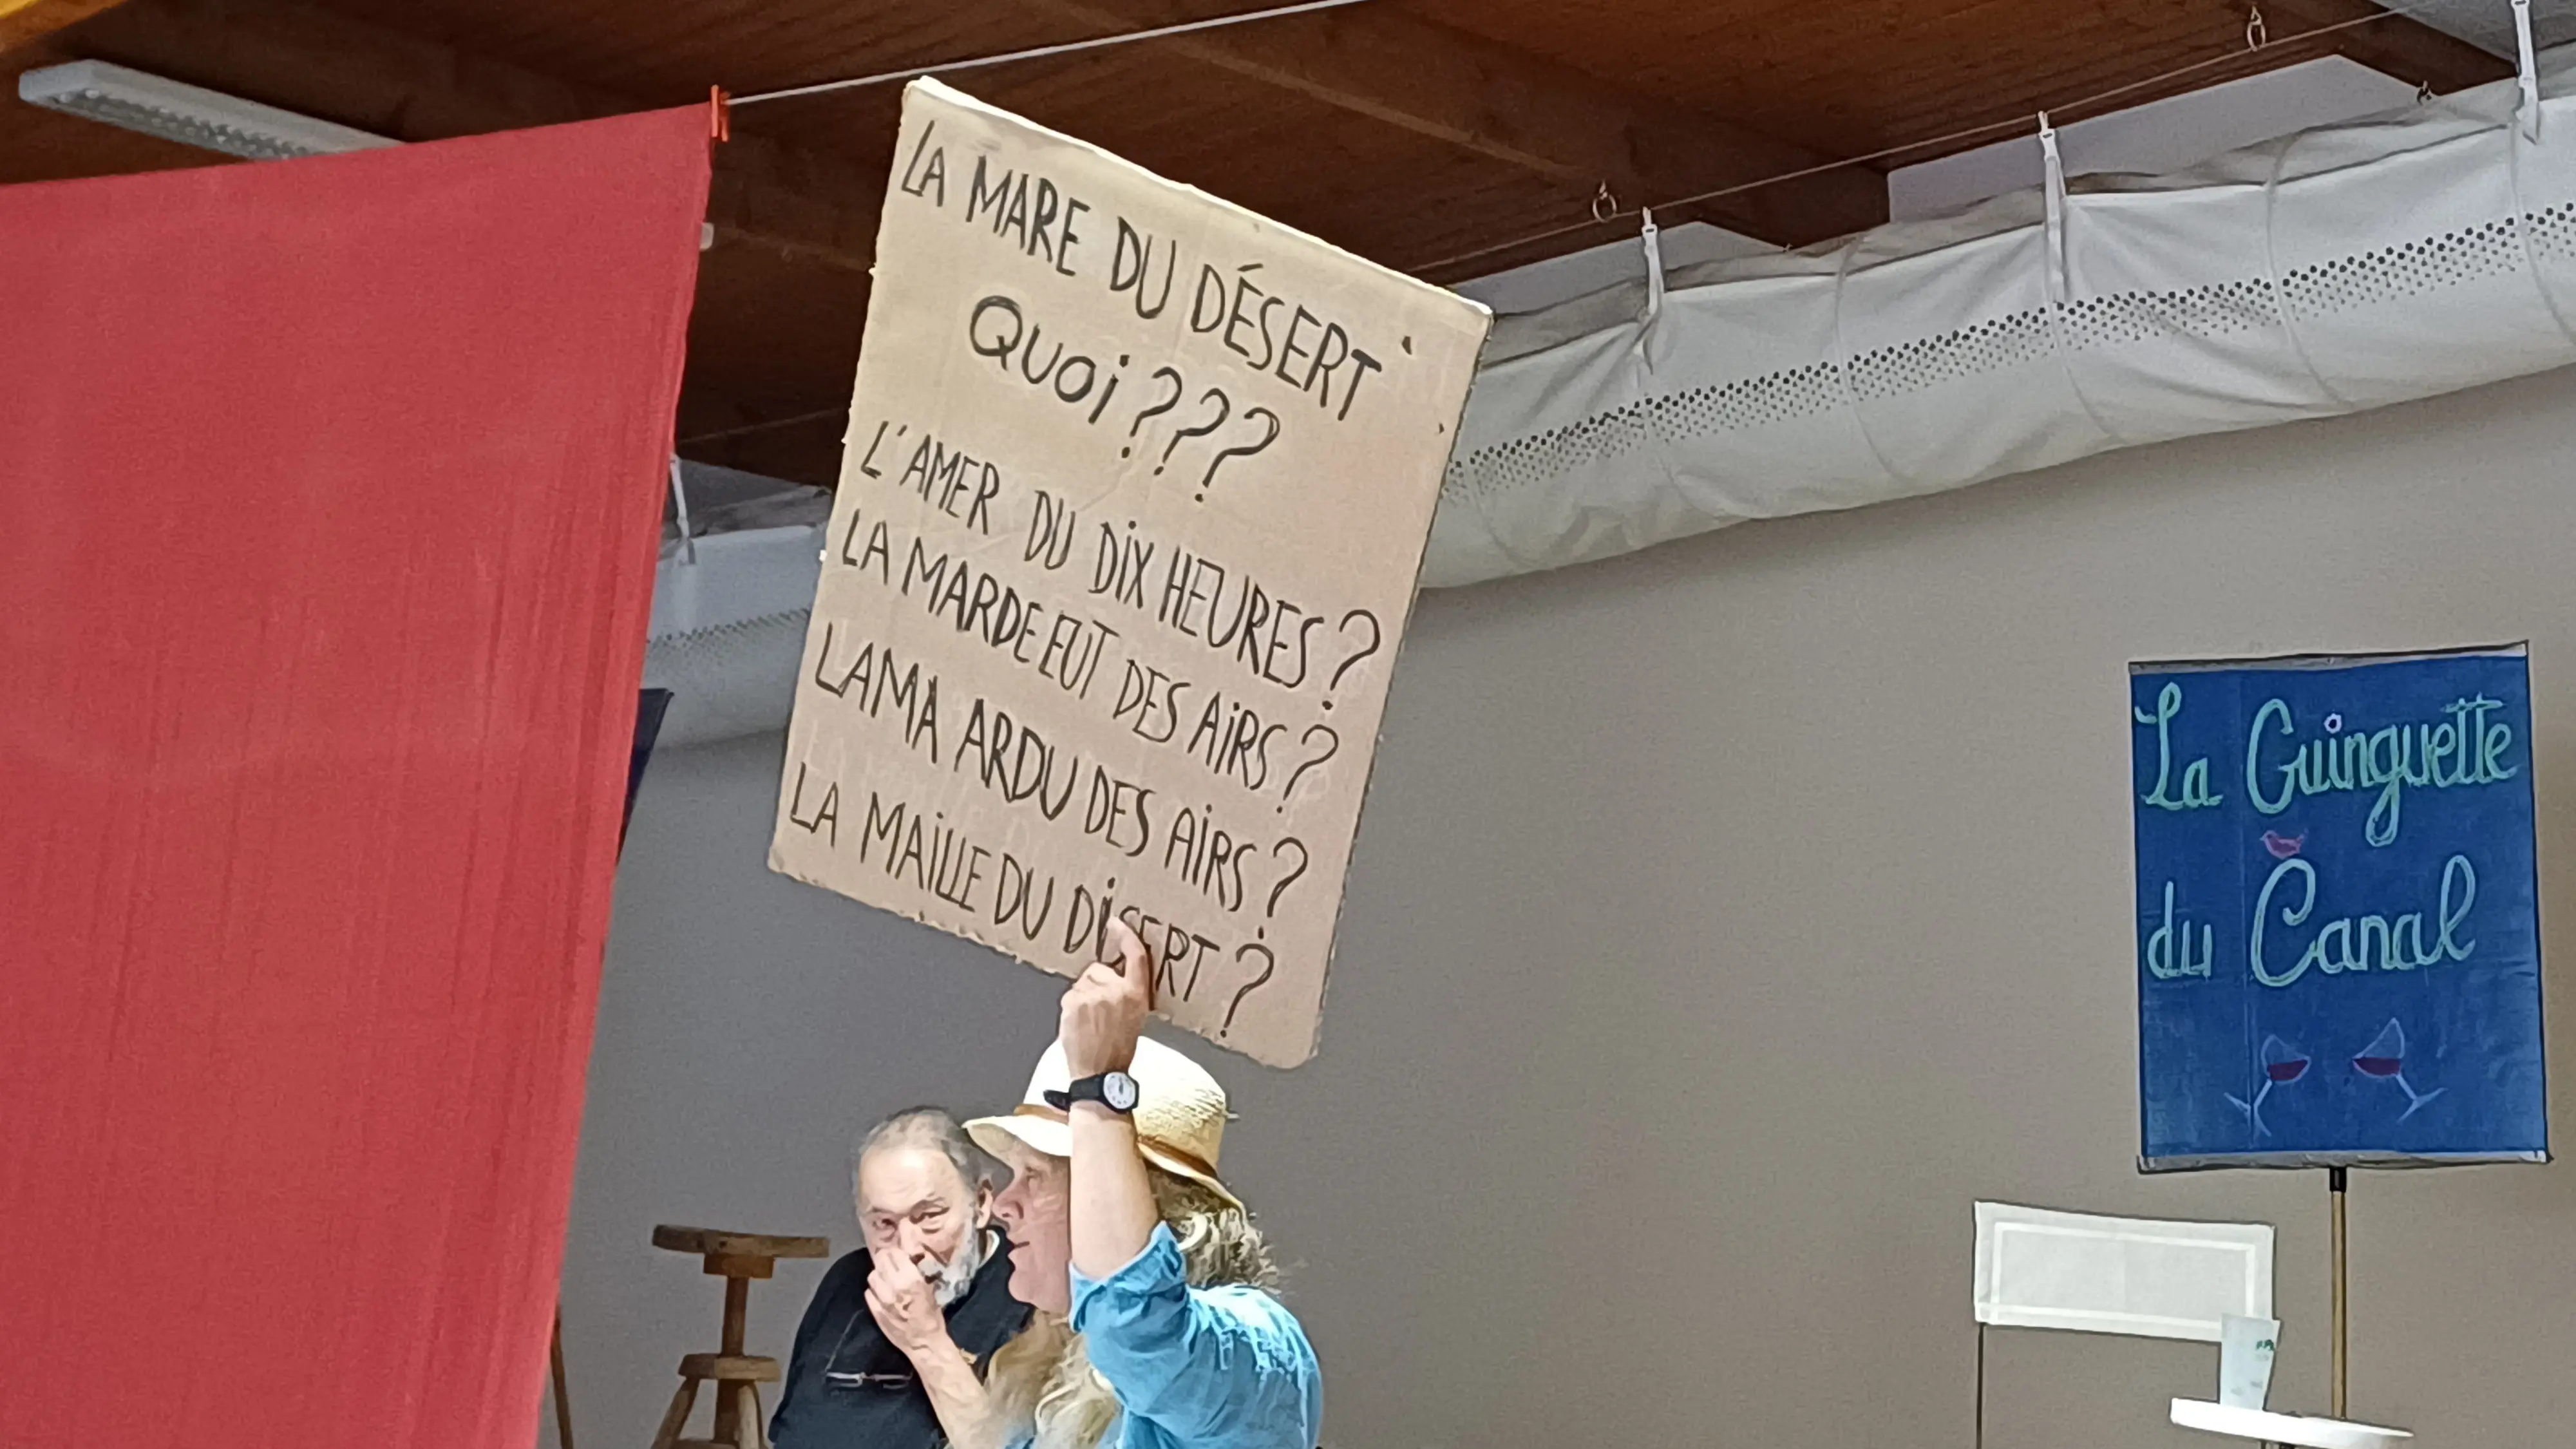 LA MARE DU DÉSERT
QUOI ???
L'AMER DU DIX HEURES ?
LA MARDE EUT DES AIRS ?
LAMA ARDU DES AIRS ?
LA MAILLE DU DISERT ?
La Guinguette
du Canal